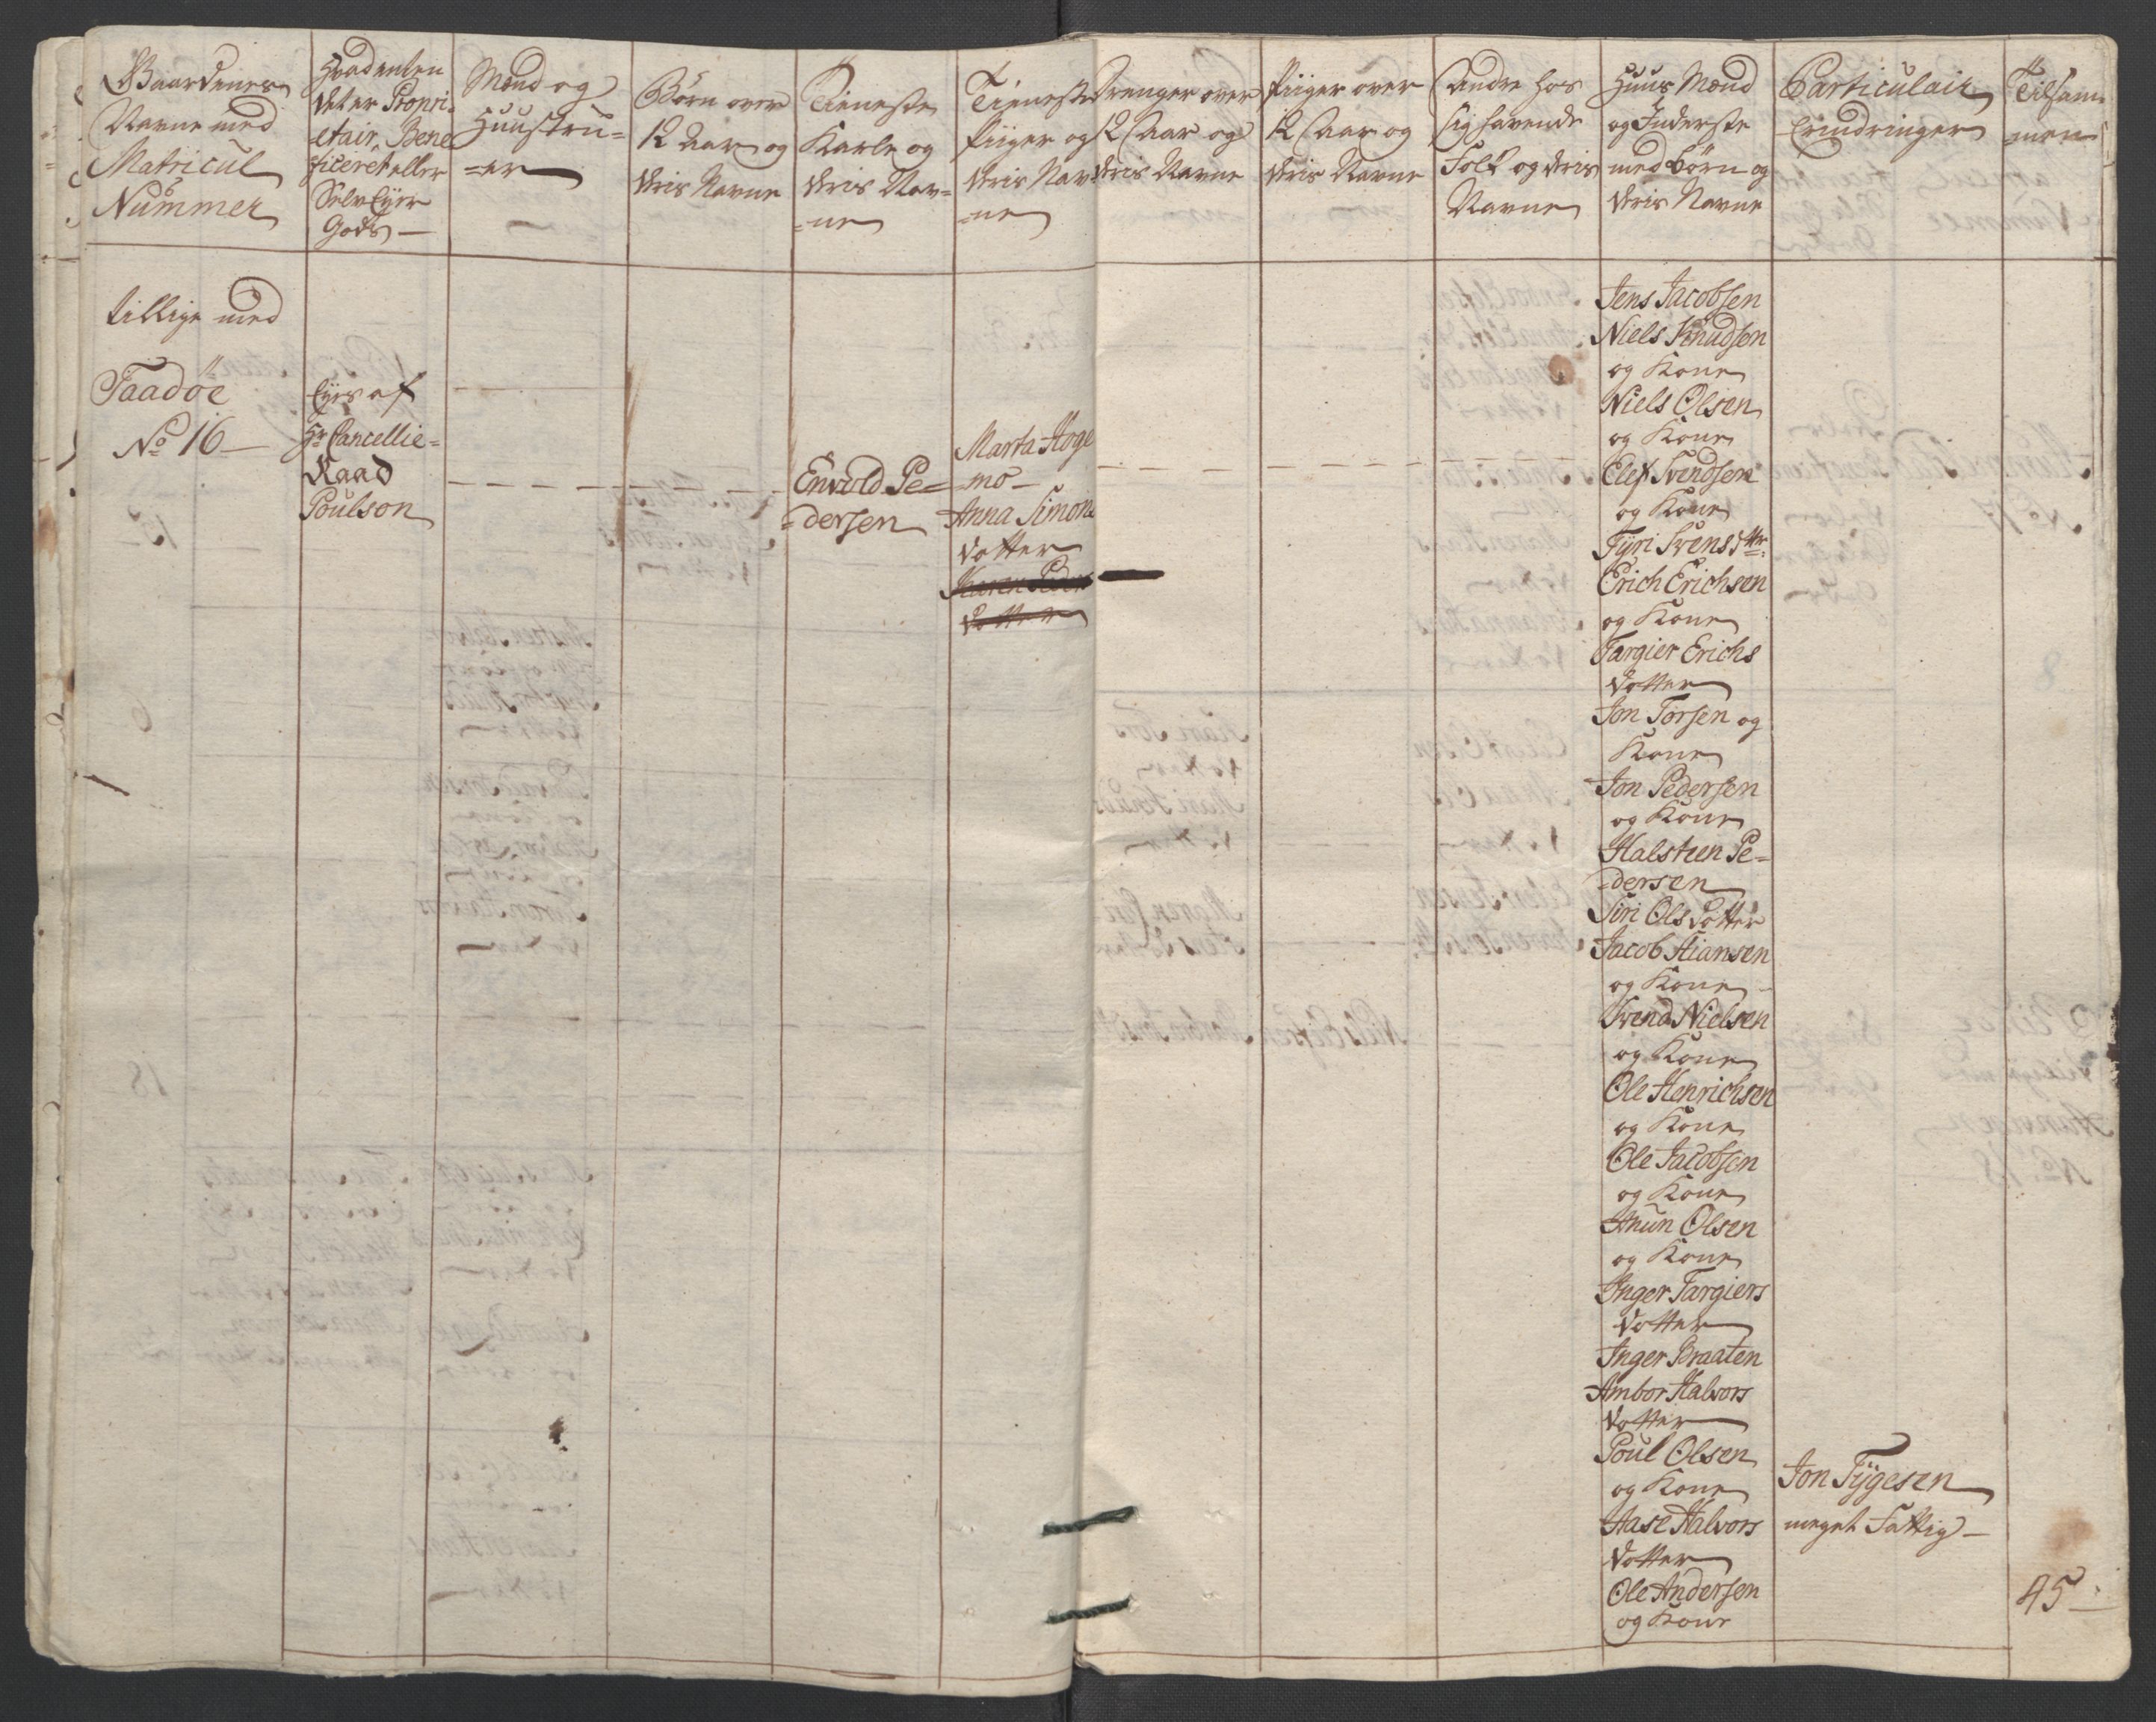 Gaardenes
Navne med
Matricul
Nummer
Hvad enten
det er Propri-
etair, Bene
ficeret eller
Selv Eyer
Gods —
Mænd og
Huustru=
=er
Börn over
12 Aar og
deris Navne
Tieneste
Karle og
deris Nav=
=ne
Tieneste
Piiger og
deris Nav
=ne
Drenger over
12 Aar og
deris Navne
Piiger over
12 Aar og
deris Navne
Andre hos
sig havende
Folk og deris
Navne
Huus Mænd
og Inderste
med börn og
deris Navne
Particulair
Erindringer
Tilsam
men
tillige med
Taadöe
No 16 —
Eyes af
Hr Cancellie=
Raad
Poulson
Envold Pe=
=dersen
Marta Hoge
mo —
Anna Simons
dotter
Karen Peders
dotter
Jens Jacobsen
Niels Knudsen
og Kone
Niels Olsen
og Kone
Elef Svendsen
og Kone
Tÿri Svens dtr
Erich Erichsen
og Kone
Targier Erichs
dotter
Jon Torsen og
Kone
Jon Pedersen
og Kone
Halsteen Pe=
=dersen
Siri Ols dotter
Jacob Stiansen
og Kone
Svend Nielsen
og Kone
Ole Henrichsen
og Kone
Ole Jacobsen
og Kone
Anun Olsen
og Kone
Inger Targiers
dotter
Inger Braaten
Ambor Halvors
dotter
Poul Olsen
og Kone
Aase Halvors
dotter
Ole Andersen
og Kone
Jon Tÿgesen
meget Fattig —
45 —